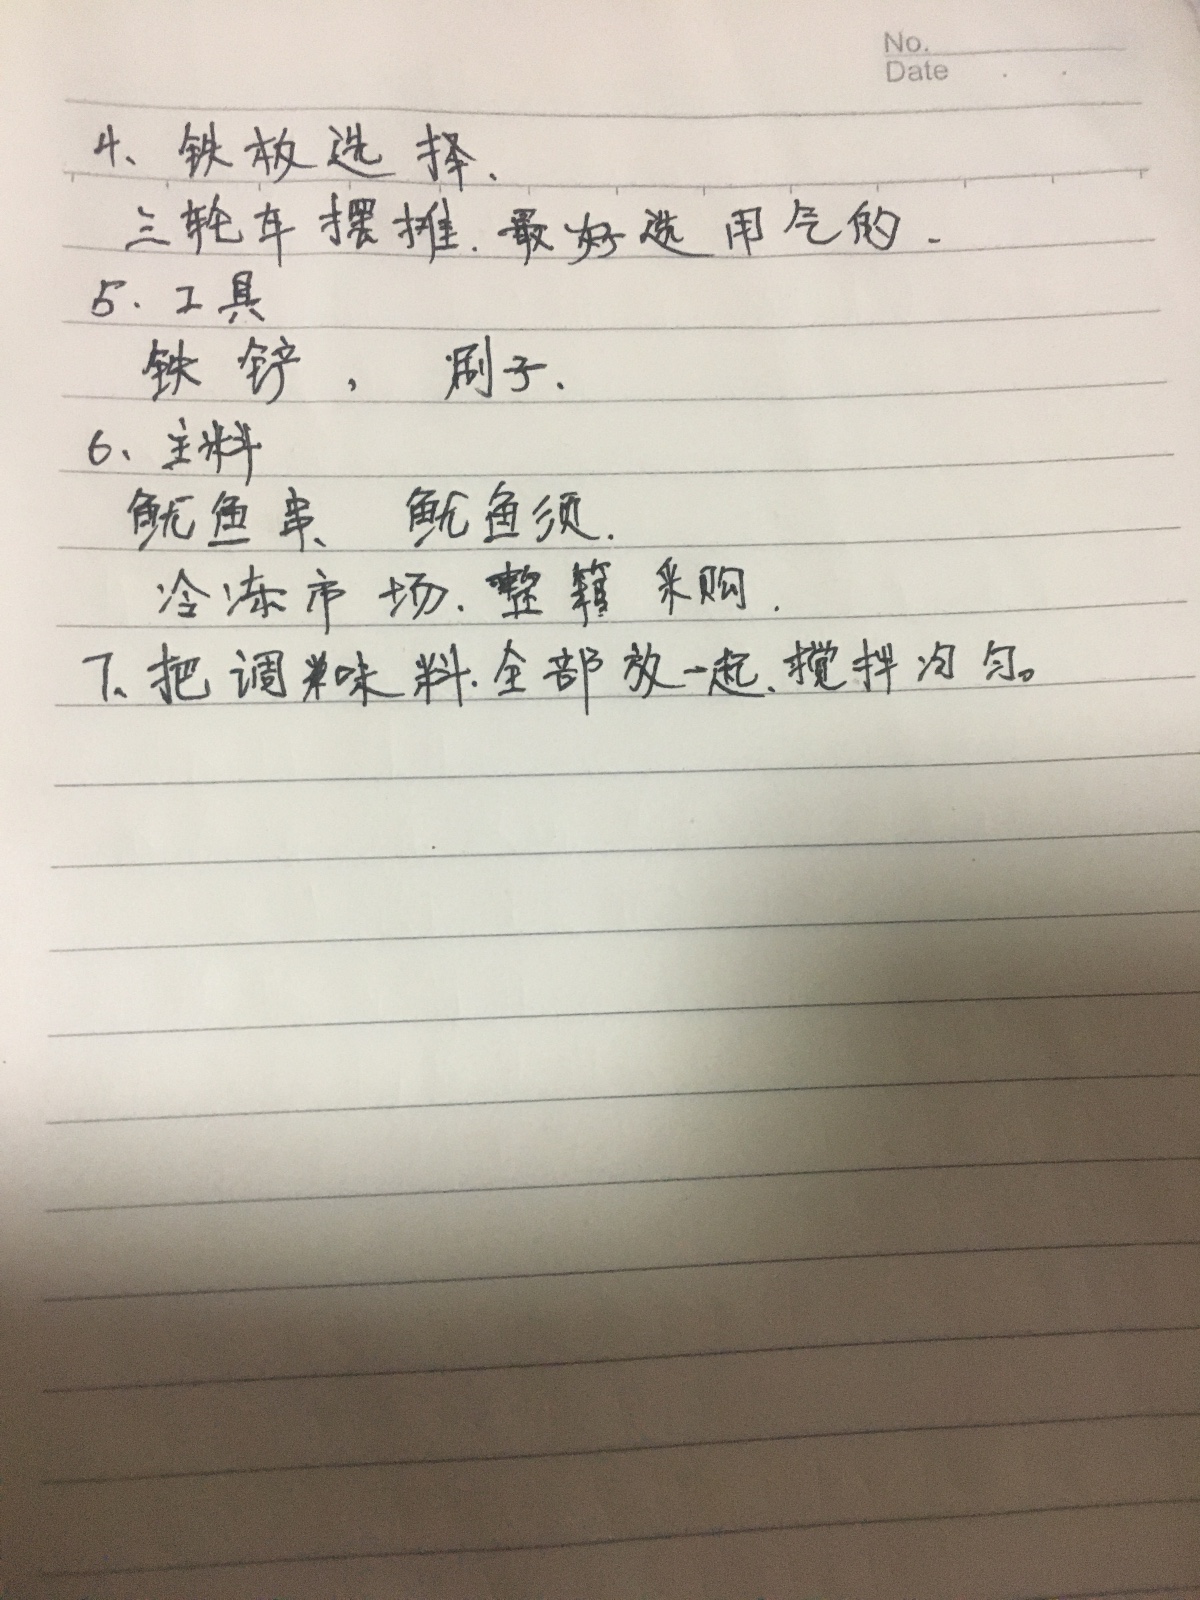 No.
Date
4、铁板选择.
三轮车摆摊.最好选用气的.
5.工具
铁铲, 刷子.
6、主料
鱿鱼串、鱿鱼须.
冷冻市场.整箱采购.
7、把调味料.全部放一起、搅拌匀匀。